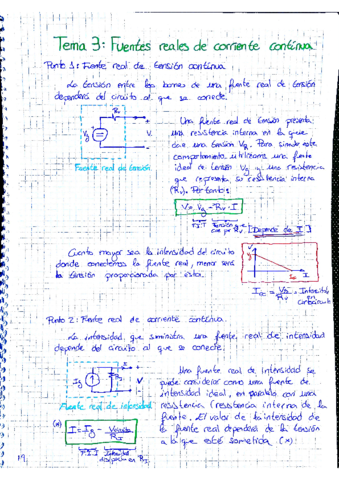 Tema 3: Fuentes reales de corriente continua
Punto 1: Fuente real de tensión continua.
La tensión entre los bornes de una fuente real de tensión
dependerá del circuito al que se conecte.
Una fuente real de tensión presenta
una resistencia interna en la que
cae una tensión
Para simular este
comportamiento utilizamos una fuente
ideal de tensión Vg y una resistencia
que representa su resistencia interna
(Rv). Por tanto:
Fuente real de tensión
V = Vg - Rv · I
Depende de I
Cuanto mayor sea la intensidad del circuito
donde conectemos la fuente real, menor será
la tensión proporcionada por ésta.
Icc = Vg/Rv = Intensidad
en
cortocircuito
Punto 2: Fuente real de corriente continua.
La intensidad que suministra una fuente real de intensidad
depende del circuito al que se conecte.
Una fuente real de intensidad se
puede considerar como una fuente de
intensidad ideal, en paralelo con una
resistencia (resistencia interna de la
fuente. El valor de la intensidad de
la fuente real dependerá de la tensión
a la que esté sometida (*):
Fuente real de intensidad
(*)
I = Ig -